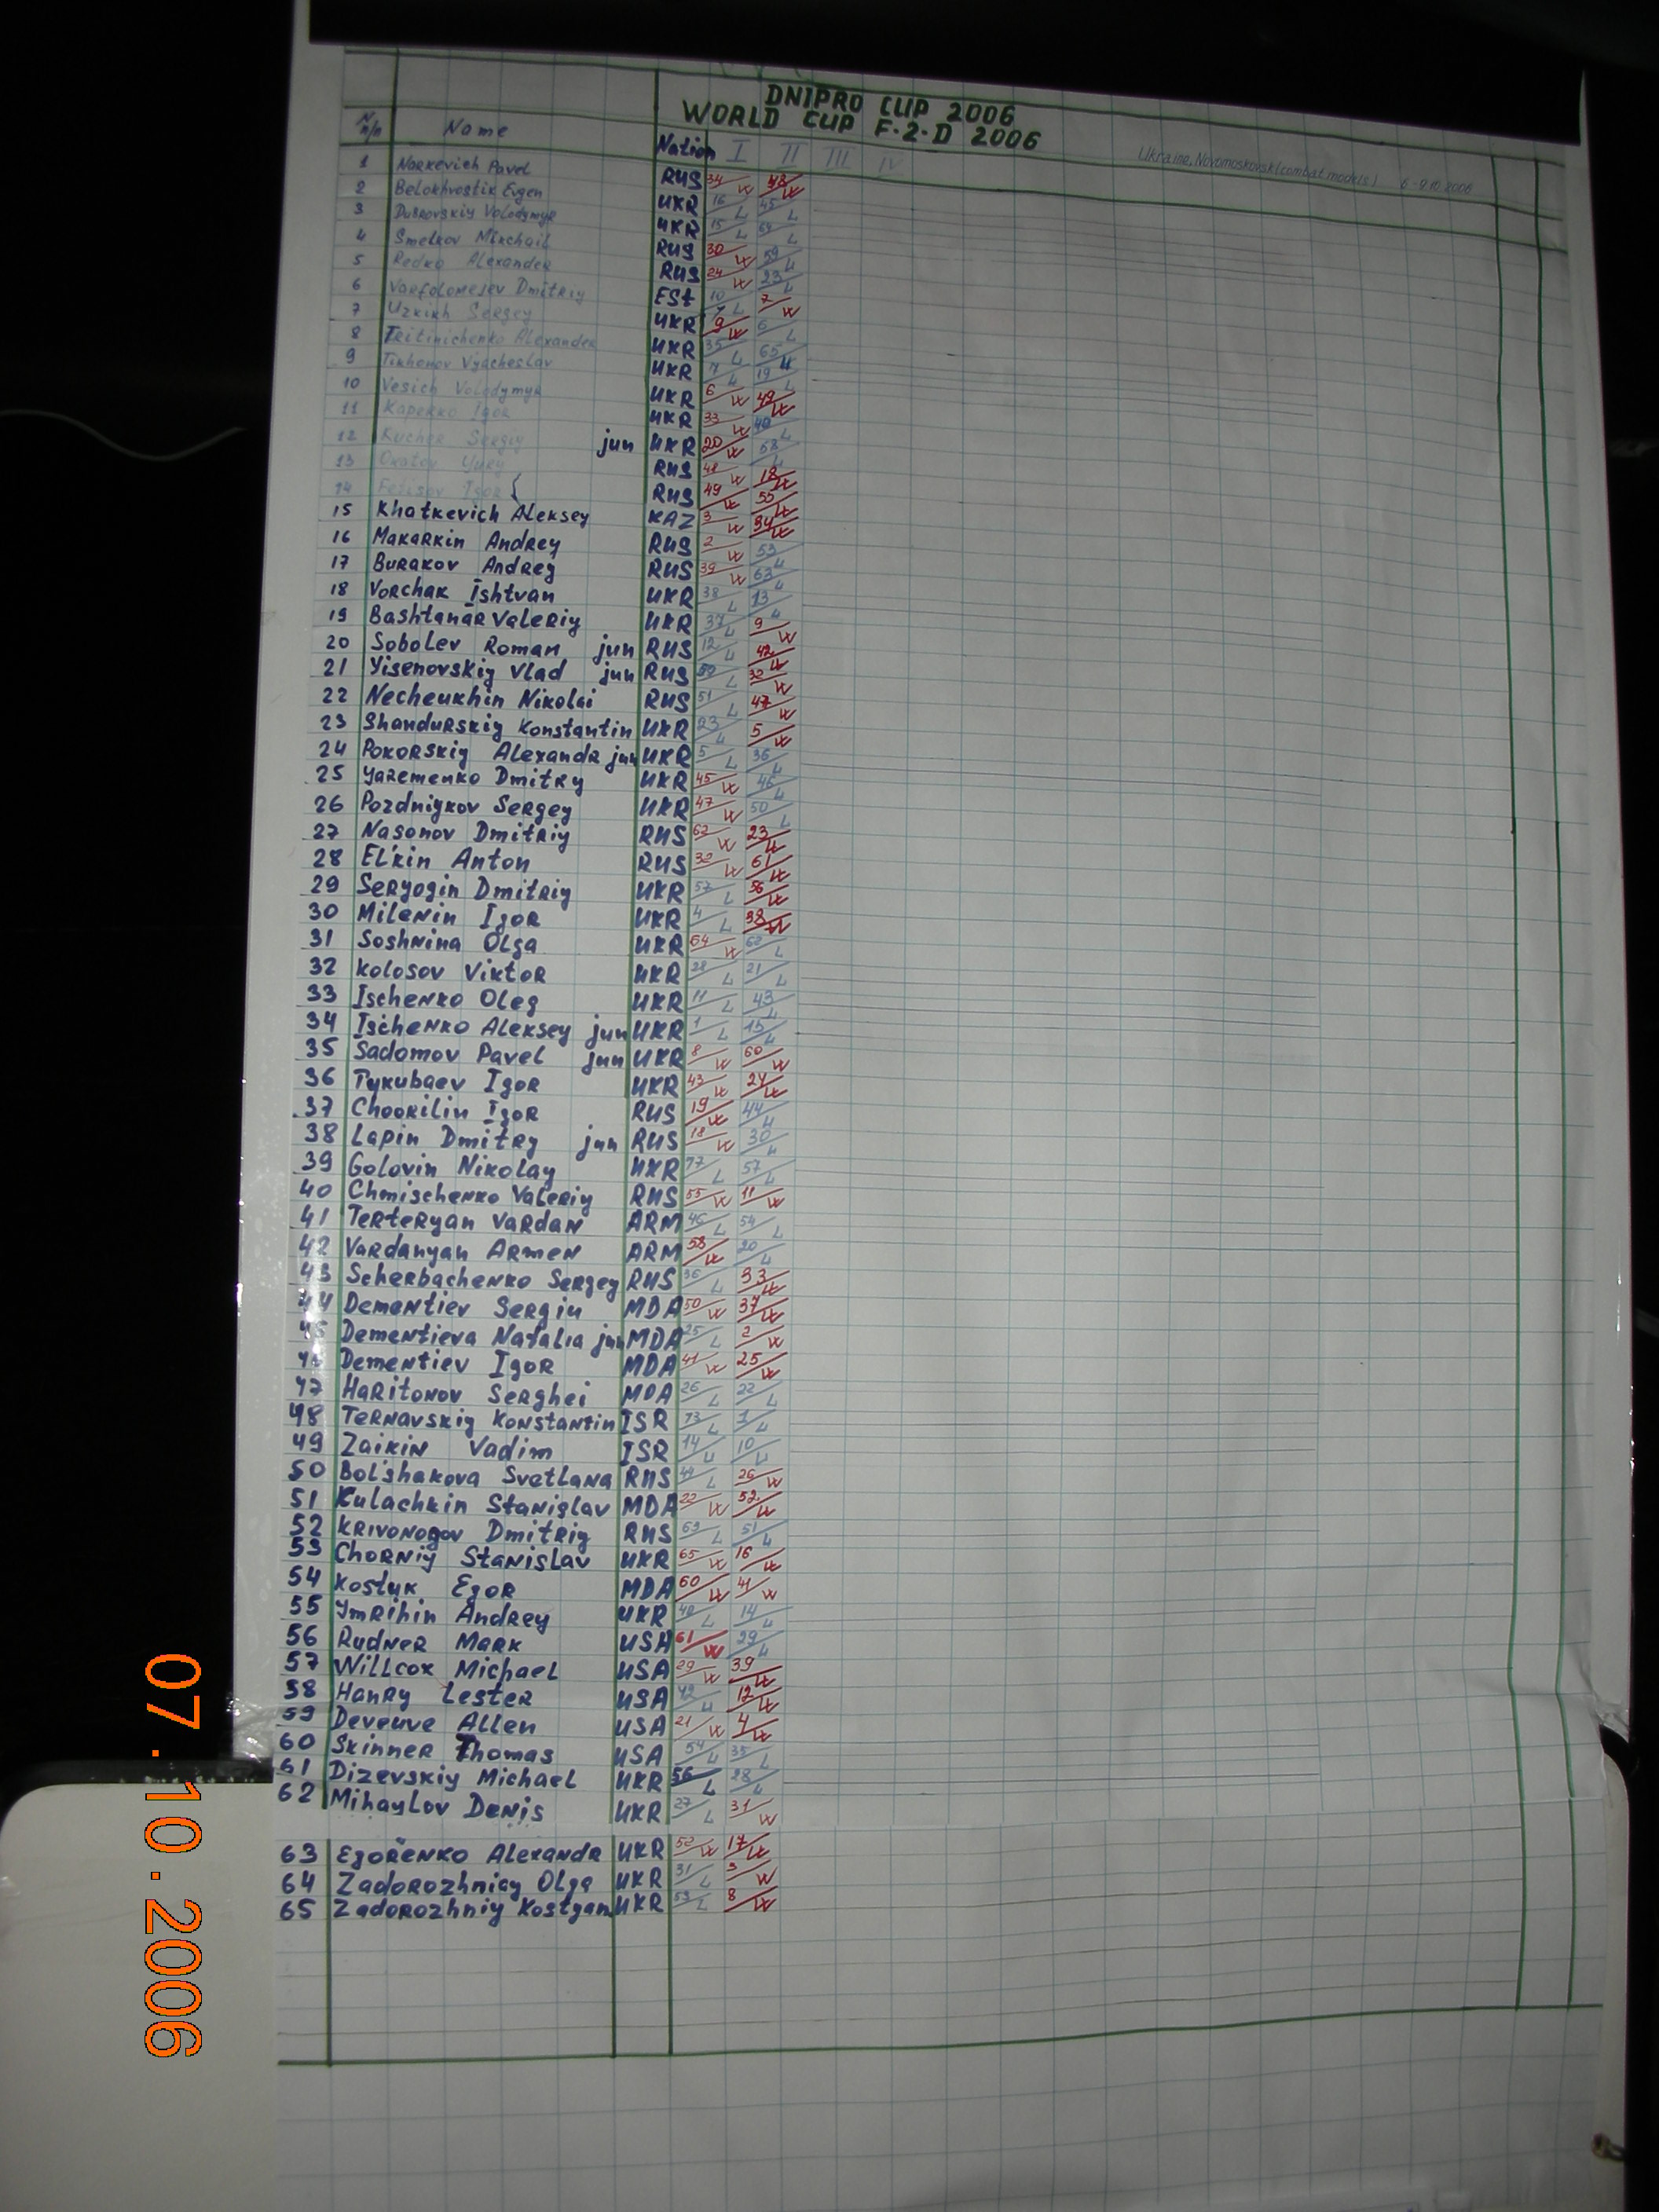 DNIPRO CUP 2006
WORLD CUP F-2-D 2006
Ukraine, Novomoskovsk (combat models) 6-9.10.2006
N п/п Name Nation I II III IV
1 Narkevich Pavel RUS 34 W 48 W
2 Belokhvostik Evgen UKR 16 L 45 L
3 Dubrovskiy Volodymyr UKR 15 L 64 L
4 Smelkov Mikchail RUS 30 W 59 L
5 Redko Alexander RUS 24 W 23 L
6 Varfolomejev Dmitriy ESt 10 L 7 W
7 Uzkikh Sergey UKR 9 W 6 L
8 Tritinichenko Alexander UKR 35 L 65 L
9 Tikhonov Vyacheslav UKR 7 L 19 L
10 Vesich Volodymyr UKR 6 W 49 W
11 Kaperko Igor UKR 33 W 40 L
12 Kucher Sergiy jun UKR 20 W 58 L
13 Yury RUS 48 W 18 W
14 Igor RUS 49 W 55 W
15 Khatkevich Aleksey KAZ 3 W 34 W
16 Makarkin Andrey RUS 2 W 53 L
17 Burakov Andrey RUS 39 W 63 L
18 Vorchak Ishtvan UKR 38 L 13 L
19 Bashtanar Valeriy UKR 37 L 9 W
20 Sobolev Roman jun RUS 12 L 42 W
21 Yisenovskiy Vlad jun RUS 59 L 32 W
22 Necheukhin Nikolai RUS 51 L 47 W
23 Shandurskiy Konstantin UKR 23 L 5 W
24 Pokorskiy Alexandr jun UKR 5 L 36 L
25 Yaremenko Dmitry UKR 45 W 46 L
26 Pozdniykov Sergey UKR 47 W 50 L
27 Nasonov Dmitriy RUS 62 W 23 W
28 El'kin Anton RUS 32 W 61 W
29 Seryogin Dmitriy UKR 57 L 56 W
30 Milenin Igor UKR 4 L 38 W
31 Soshnina Olga UKR 64 W 62 L
32 Kolosov Viktor UKR 28 L 21 L
33 Ischenko Oleg UKR 11 L 43 L
34 Ischenko Aleksey jun UKR 1 L 15 L
35 Sadomov Pavel jun UKR 8 W 60 W
36 Tykubaev Igor UKR 43 W 24 W
37 Choorilin Igor RUS 19 W 44 L
38 Lapin Dmitry jun RUS 18 W 30 L
39 Golovin Nikolay UKR 17 L 57 L
40 Chmischenko Valeriy RUS 55 W 11 W
41 Terteryan Vardan ARM 46 L 54 L
42 Vardanyan Armen ARM 58 W 20 L
43 Scherbachenko Sergey RUS 36 L 33 W
44 Dementiev Sergiu MDA 50 W 37 W
45 Dementieva Natalia jun MDA 25 L 2 W
46 Dementiev Igor MDA 41 W 25 W
47 Haritonov Serghei MDA 26 L 22 L
48 Ternavskiy Konstantin ISR 13 L 1 L
49 Zaikin Vadim ISR 14 L 10 L
50 Bol'shakova Svetlana RUS 44 L 26 W
51 Kulachkin Stanislav MDA 22 W 52 W
52 Krivonogov Dmitriy RUS 63 L 51 L
53 Chorniy Stanislav UKR 65 W 16 W
54 Kostyk Egor MDA 60 W 41 W
55 Ymrihin Andrey UKR 40 L 14 L
56 Rudner Mark USA 61 W 29 L
57 Willcox Michael USA 29 W 39 W
58 Hanry Lester USA 42 L 12 W
59 Deveuve Allen USA 21 W 4 W
60 Skinner Thomas USA 54 L 35 L
61 Dizevskiy Michael UKR 56 L 28 L
62 Mihaylov Denis UKR 27 L 31 W
63 Egorenko Alexandr UKR 52 W 17 W
64 Zadorozhniay Olga UKR 31 L 3 W
65 Zadorozhniy Kostyan UKR 53 L 8 W
07.10.2006